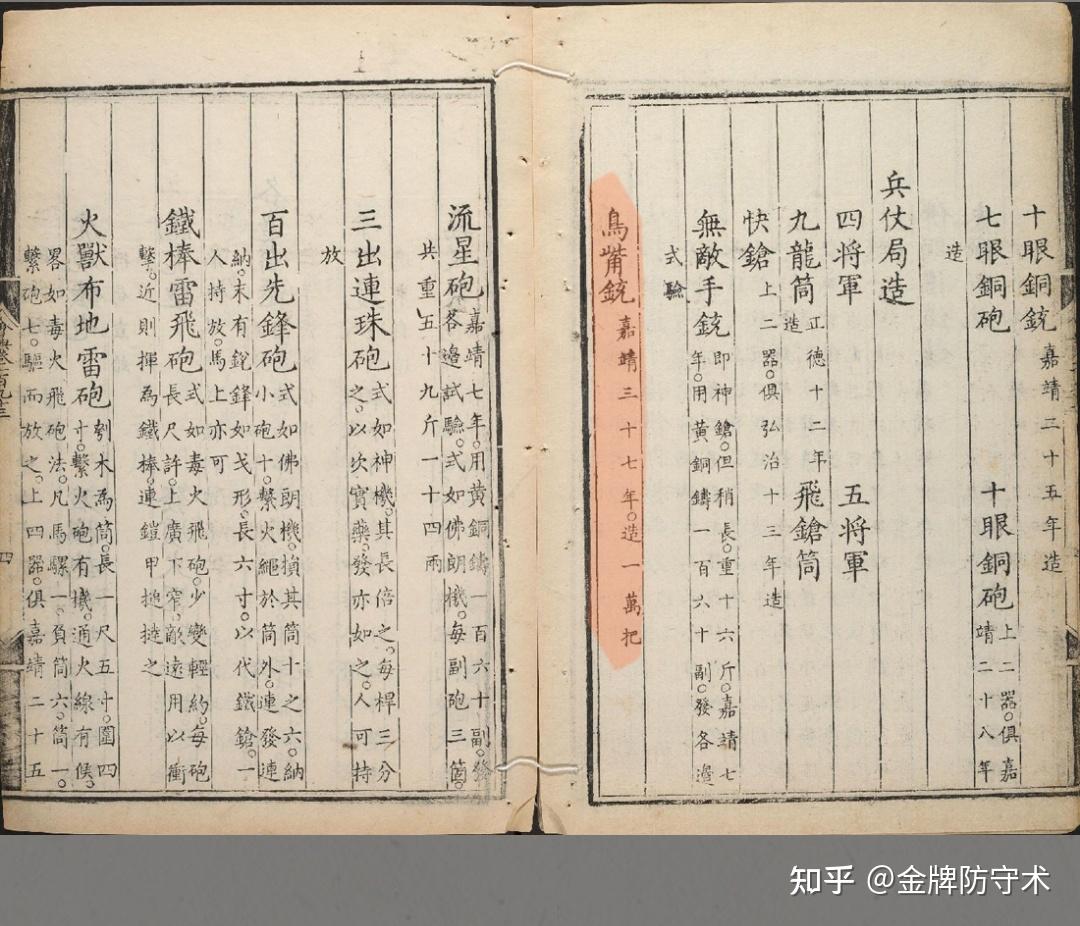 十眼銅銃嘉靖二十五年造
七眼銅砲　十眼銅砲上二器。俱嘉靖二十八年
造
兵仗局造
四將軍　五將軍
九龍筒正德十二年造　飛鎗筒
快鎗上二器。俱弘治十三年造
無敵手銃即神鎗。但稍長。重十六斤。嘉靖七年。用黃銅鑄一百六十副。發各邊
式驗
鳥嘴銃嘉靖三十七年。造一萬把
流星砲嘉靖七年。用黃銅鑄一百六十副。發各邊試驗。式如佛朗機。每副砲三箇。
共重五十九斤一十四兩
三出連珠砲式如神機。其長倍之。每桿三分之。以次實藥。發亦如之。人可持
放
百出先鋒砲式如佛朗機。損其筒十之六。納小砲十。繫火繩於筒外。連發連
納。末有銳鋒如戈形。長六寸。以代鐵鎗。一人持放。馬上亦可
鐵棒雷飛砲式如毒火飛砲。少變輕約。每砲長尺許。上廣下窄。敵遠用以衝
擊。近則揮為鐵棒。連鎧甲搥撻之
火獸布地雷砲刳木為筒。長一尺五寸。圍四寸。繫火砲有機。通火線有候。
畧如毒火飛砲法。凡馬騾一。負筒六。筒一。繫砲七。驅而放之。上四器。俱嘉靖二十五
四
知乎 @金牌防守术